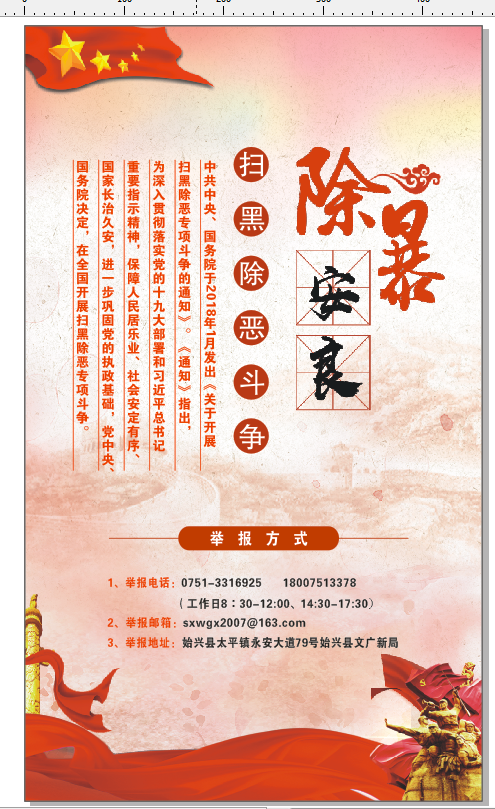 除暴
安良
扫黑除恶斗争
中共中央、国务院于2018年1月发出《关于开展
扫黑除恶专项斗争的通知》。《通知》指出，
为深入贯彻落实党的十九大部署和习近平总书记
重要指示精神，保障人民居乐业、社会安定有序、
国家长治久安，进一步巩固党的执政基础，党中央、
国务院决定，在全国开展扫黑除恶专项斗争。
举报方式
1、举报电话：0751-3316925 18007513378
（工作日8：30-12:00、14:30-17:30）
2、举报邮箱：sxwgx2007@163.com
3、举报地址：始兴县太平镇永安大道79号始兴县文广新局